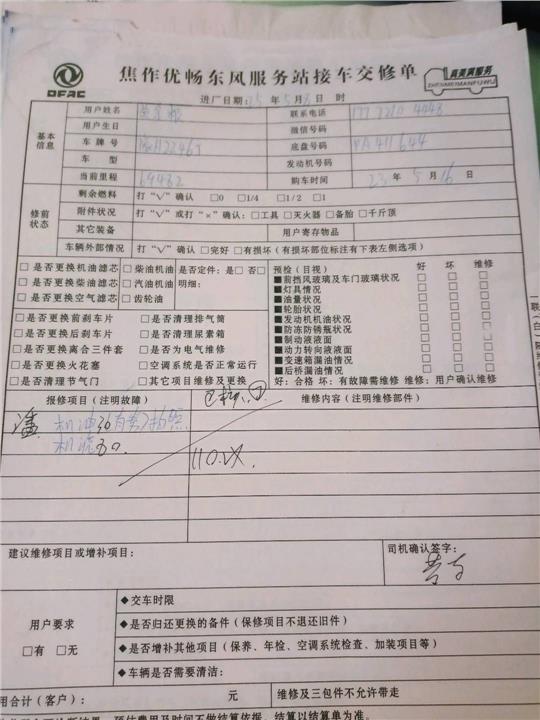 DFAC
焦作优畅东风服务站接车交修单
真美真服务
ZHENMEIMANFUWU
进厂日期:25 年 5 月 日 时
基本信息
用户姓名
联系电话
用户生日
微信号码
车牌号
底盘号码
车型
发动机号码
当前里程 64482
购车时间 23 年 5 月 16 日
修前状态
剩余燃料 打"√"确认 □0 □1/4 □1/2 □1
附件状况 打"√"或打"×"确认:□工具 □灭火器 □备胎 □千斤顶
其它装备
用户寄存物品
车辆外部情况 打"√"确认 □完好 □有损坏(有损坏部位标注有下表左侧选项)
□是否更换机油滤芯 □柴油机油 是否定件:是□ 否□
□是否更换柴油滤芯 □汽油机油 明细:
□是否更换空气滤芯 □齿轮油
□是否更换前刹车片 □是否清理排气筒
□是否更换后刹车片 □是否清理尿素箱
□是否更换离合三件套 □是否为电气维修
□是否更换火花塞 □空调系统是否正常运行
□是否清理节气门 □其它项目维修及更换
预检(目视) 好 坏 维修
■前挡风玻璃及车门玻璃状况 □ □ □
■灯具情况 □ □ □
■油量状况 □ □ □
■轮胎状况 □ □ □
■发动机机油状况 □ □ □
■防冻防锈瓶状况 □ □ □
■制动液液面 □ □ □
■动力转向液液面 □ □ □
■变速箱漏油情况 □ □ □
■后桥漏油情况 □ □ □
好:合格 坏:有故障需维修 维修:用户确认维修
报修项目(注明故障)
维修内容(注明维修部件)
机油
机滤
110.
建议维修项目或增补项目:
司机确认签字:
用户要求
□有 □无
◆交车时限
◆是否归还更换的备件(保修项目不退还旧件)
◆是否增补其他项目(保养、年检、空调系统检查、加装项目等)
◆车辆是否需要清洁:
用合计(客户): 元
维修及三包件不允许带走
预估费用及时间不做结算依据,结算以结算单为准。